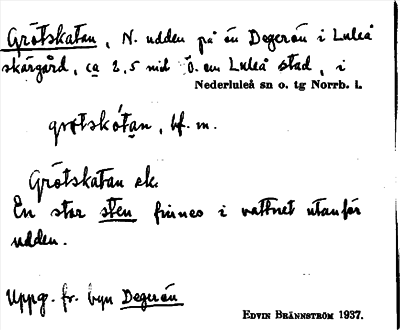 Grötskatan, N. udden på ön Degerön i Luleå
skärgård, ca 2,5 mil ö. om Luleå stad, i
Nederluleå sn o. tg Norrb. l.
grøtskòtan, bf. m.
Grötskatan ek.
En stor sten finnes i vattnet utanför
udden.
Uppg. fr. byn Degerön
EDVIN BRÄNNSTRÖM 1937.